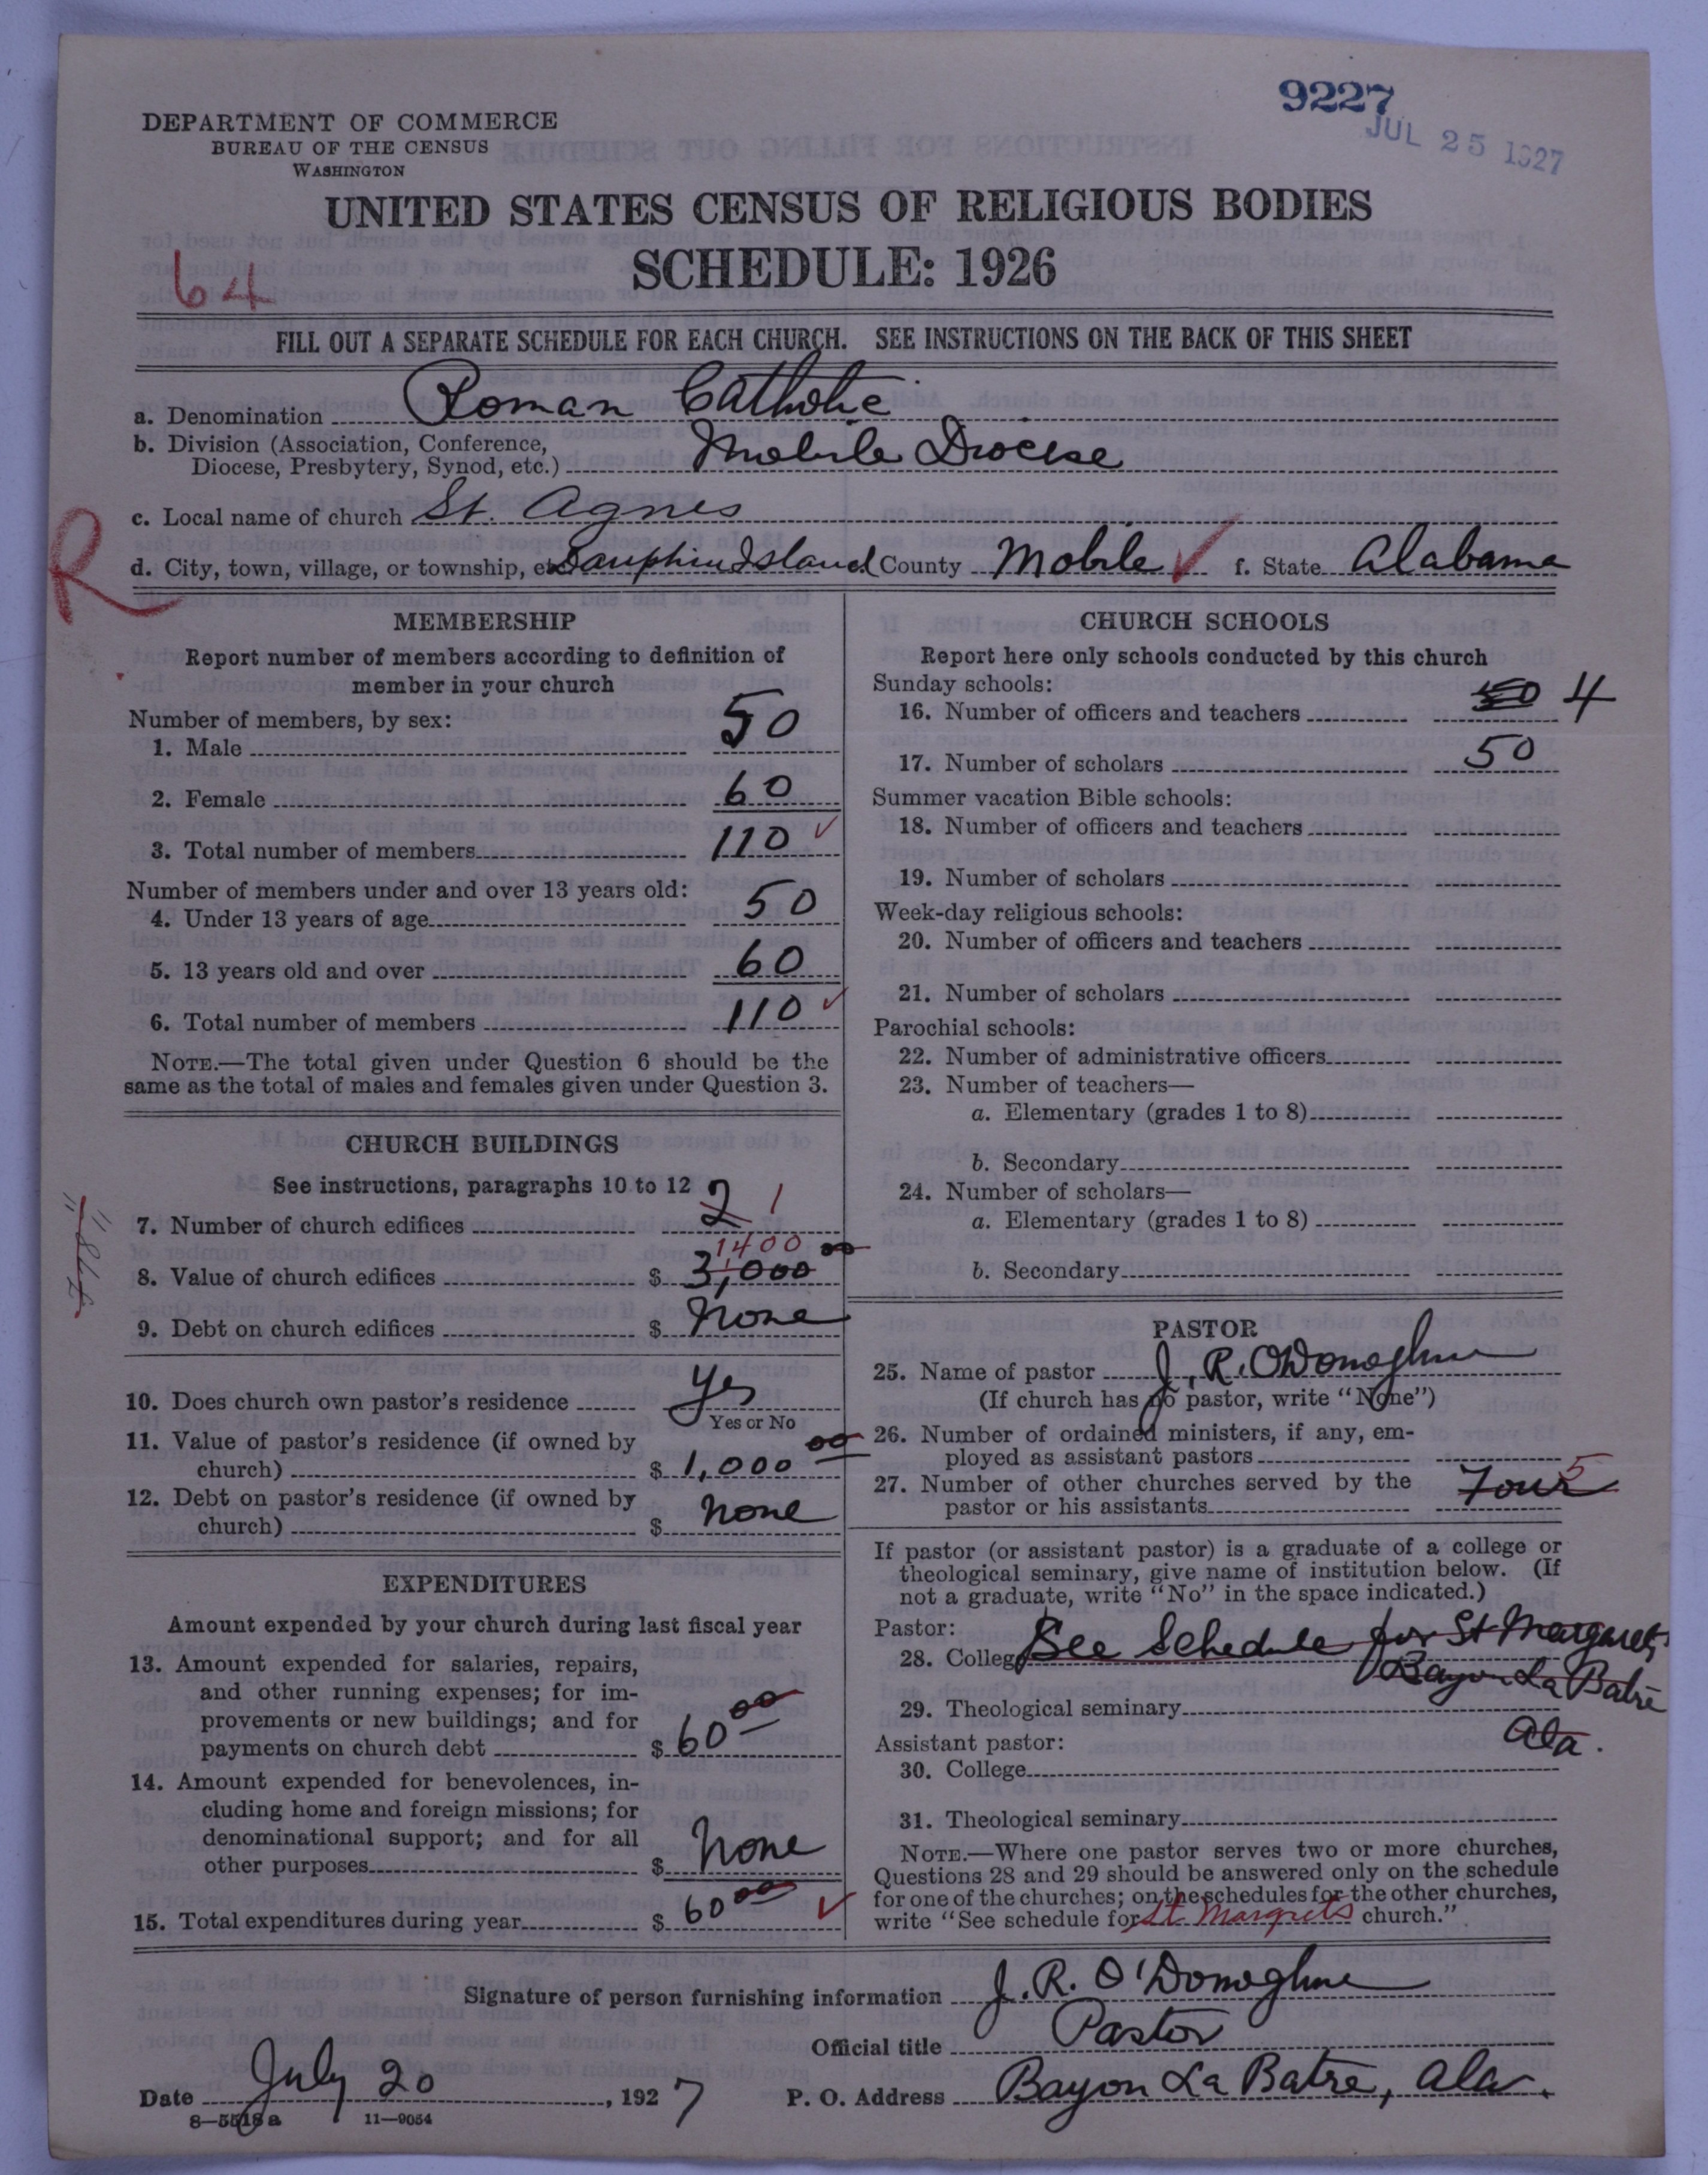 9227
JUL 25 1927
DEPARTMENT OF COMMERCE
BUREAU OF THE CENSUS
WASHINGTON
UNITED STATES CENSUS OF RELIGIOUS BODIES
SCHEDULE: 1926
64
FILL OUT A SEPARATE SCHEDULE FOR EACH CHURCH. SEE INSTRUCTIONS ON THE BACK OF THIS SHEET
a. Denomination Roman Catholic
b. Division (Association, Conference,
Diocese, Presbytery, Synod, etc.) Mobile Diocese
c. Local name of church St. Agnes
R
d. City, town, village, or township, etc. Dauphin Island County Mobile ✓ f. State Alabama
MEMBERSHIP
Report number of members according to definition of
member in your church
Number of members, by sex:
1. Male 50
2. Female 60
3. Total number of members 110 ✓
Number of members under and over 13 years old:
4. Under 13 years of age 50
5. 13 years old and over 60
6. Total number of members 110 ✓
NOTE.—The total given under Question 6 should be the
same as the total of males and females given under Question 3.
CHURCH BUILDINGS
See instructions, paragraphs 10 to 12
7. Number of church edifices 2 1
1400
8. Value of church edifices $ 3,000 00
9. Debt on church edifices $ None
10. Does church own pastor's residence Yes
Yes or No
11. Value of pastor's residence (if owned by
church) $ 1,000 00
12. Debt on pastor's residence (if owned by
church) $ None
EXPENDITURES
Amount expended by your church during last fiscal year
13. Amount expended for salaries, repairs,
and other running expenses; for im-
provements or new buildings; and for
payments on church debt $ 60 00
14. Amount expended for benevolences, in-
cluding home and foreign missions; for
denominational support; and for all
other purposes $ None
15. Total expenditures during year $ 60 00 ✓
CHURCH SCHOOLS
Report here only schools conducted by this church
Sunday schools:
16. Number of officers and teachers 50 4
17. Number of scholars 50
Summer vacation Bible schools:
18. Number of officers and teachers
19. Number of scholars
Week-day religious schools:
20. Number of officers and teachers
21. Number of scholars
Parochial schools:
22. Number of administrative officers
23. Number of teachers—
a. Elementary (grades 1 to 8)
b. Secondary
24. Number of scholars—
a. Elementary (grades 1 to 8)
b. Secondary
PASTOR
25. Name of pastor J. R. O'Donoghue
(If church has no pastor, write "None")
26. Number of ordained ministers, if any, em-
ployed as assistant pastors
27. Number of other churches served by the
pastor or his assistants Four 5
If pastor (or assistant pastor) is a graduate of a college or
theological seminary, give name of institution below. (If
not a graduate, write "No" in the space indicated.)
Pastor:
28. College See Schedule for St Margarets
Bayou La Batre
29. Theological seminary
Ala.
Assistant pastor:
30. College
31. Theological seminary
NOTE.—Where one pastor serves two or more churches,
Questions 28 and 29 should be answered only on the schedule
for one of the churches; on the schedules for the other churches,
write "See schedule for St Margrets church."
Signature of person furnishing information J. R. O'Donoghue
Official title Pastor
Date July 20, 1927 P. O. Address Bayou La Batre, Ala.
8—5518 a 11—9054